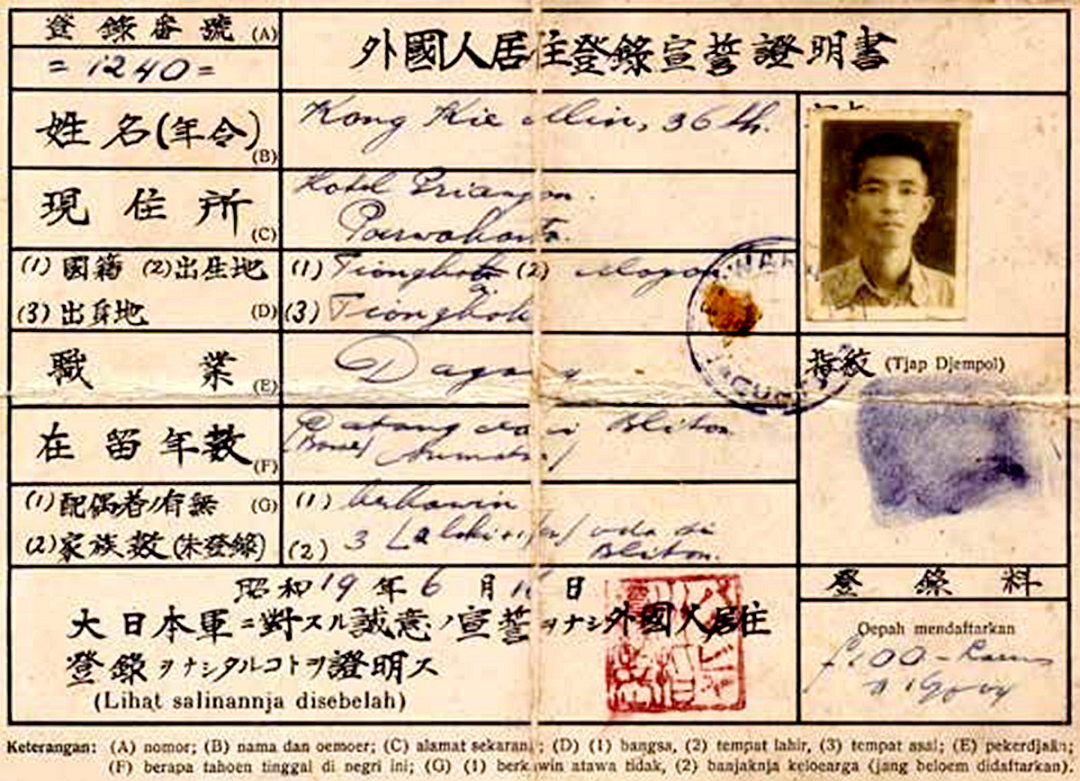 登錄番號 (A)
= 1240 =
外國人居住登錄宣誓證明書
姓名(年令) (B)
Kong Kie Min, 36 th.
現住所 (C)
Hotel Priangan
Poerwakarta.
(1) 國籍 (2) 出生地
(3) 出身地 (D)
(1) Tionghoa (2)
(3) Tionghok
職業 (E)
Dagang
在留年數 (F)
Datang dari Bliton
(1) 配偶者ノ有無 (G)
(2) 家族數(未登錄)
(1) berkawin
(2) 3 Laki ada di
Bliton.
指紋 (Tjap Djempol)
昭和19年6月 日
大日本軍ニ對スル誠意ノ宣誓ヲナシ外國人居住
登錄ヲナシタルコトヲ證明ス
(Lihat salinannja disebelah)
登錄料
Oepah mendaftarkan
Keterangan: (A) nomor; (B) nama dan oemoer; (C) alamat sekarang; (D) (1) bangsa, (2) tempat lahir, (3) tempat asal; (E) pekerdjaän;
(F) berapa tahoen tinggal di negri ini; (G) (1) berkawin atawa tidak, (2) banjaknja keloearga (jang beloem didaftarkan).